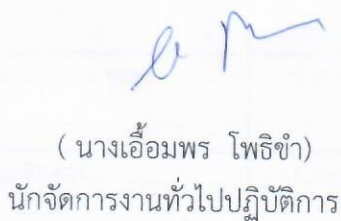 ( นางเอื้อมพร โพธิขำ)
นักจัดการงานทั่วไปปฏิบัติการ